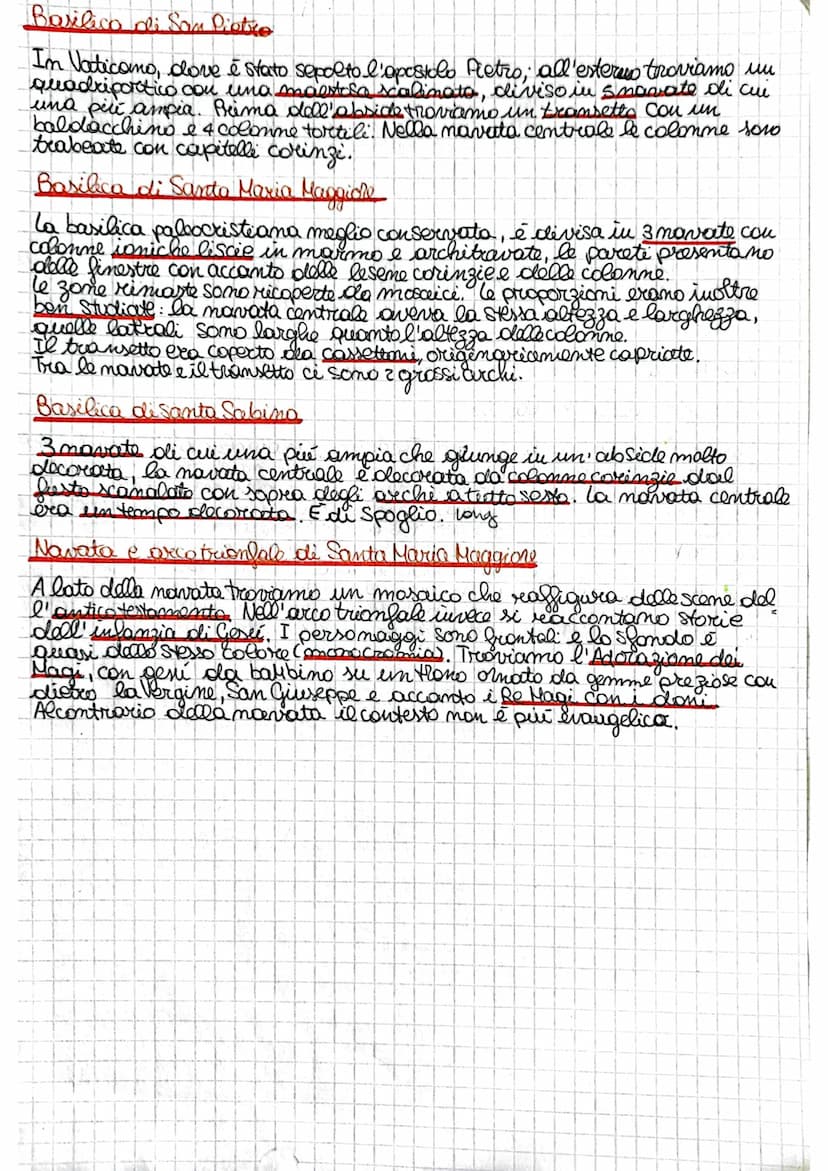 Basilica di San Pietro
In Vaticano, dove è stato sepolto l'apostolo Pietro, all'esterno troviamo un
quadriportico con una maestosa scalinata, diviso in 5 navate di cui
una più ampia. Prima dell'abside troviamo un transetto con un
baldacchino e 4 colonne tortili. Nella navata centrale le colonne sono
trabeate con capitelli corinzi.
Basilica di Santa Maria Maggiore
La basilica paleocristiana meglio conservata, è divisa in 3 navate con
colonne ioniche liscie in marmo e architravate, le pareti presentano
delle finestre con accanto delle lesene corinzie e delle colonne.
Le zone rimaste sono ricoperte da mosaici. Le proporzioni erano inoltre
ben studiate: la navata centrale aveva la stessa altezza e larghezza,
quelle laterali sono larghe quanto l'altezza delle colonne.
Il transetto era coperto da cassettoni, originariamente capriate.
Tra le navate e il transetto ci sono 2 grossi archi.
Basilica di santa Sabina
3 navate di cui una più ampia che giunge in un'abside molto
decorata, la navata centrale è decorata da colonne corinzie dal
fusto scanalato con sopra degli archi a tutto sesto. La navata centrale
era un tempo decorata. È di spoglio.
Navata e arco trionfale di Santa Maria Maggiore
A lato della navata troviamo un mosaico che raffigura delle scene del
l'antico testamento. Nell'arco trionfale invece si raccontano storie
dell'infanzia di Gesù. I personaggi sono frontali e lo sfondo è
quasi dello stesso colore (monocromia). Troviamo l'Adorazione dei
Magi, con gesù da bambino su un trono ornato da gemme preziose con
dietro la Vergine, San Giuseppe e accanto i Re Magi con i doni.
Al contrario della navata il contesto non è più evangelica.